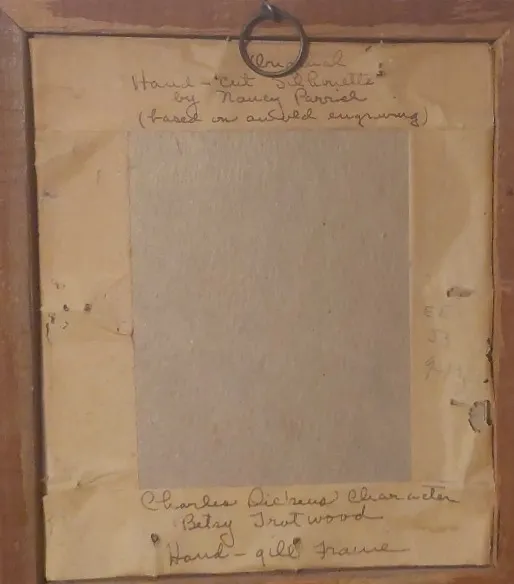 Original
Hand-cut Silhouette
by Nancy Parrish
(based on an old engraving)
Charles Dickens Character
Betsy Trotwood
Hand-gilt Frame